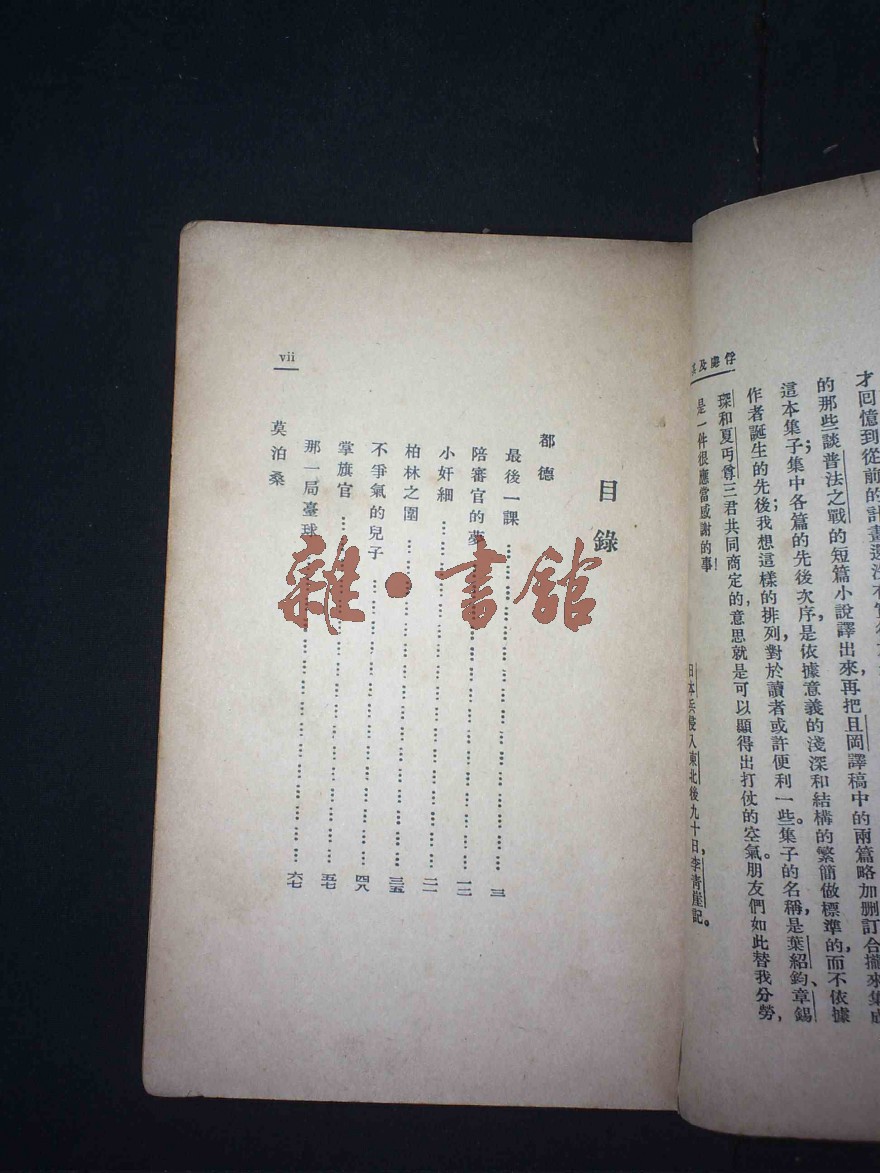 才回憶到從前的計畫
的那些談普法之戰的短篇小說譯出來,再把且岡譯稿中的兩篇略加刪訂合攏來集成
這本集子;集中各篇的先後次序,是依據意義的淺深和結構的繁簡做標準的,而不依據
作者誕生的先後;我想這樣的排列對於讀者或許便利一些。集子的名稱,是葉紹鈞、章錫
琛和夏丏尊三君共同商定的,意思就是可以顯得出打仗的空氣。朋友們如此替我分勞,
是一件很應當感謝的事!
日本兵侵入東北後九十日,李青崖記。
目錄
都德
最後一課 三
陪審官的夢 一二
小奸細 二一
柏林之圍 三五
不爭氣的兒子 四八
掌旗官 五七
那一局臺球 六七
莫泊桑
vii
雜·書館